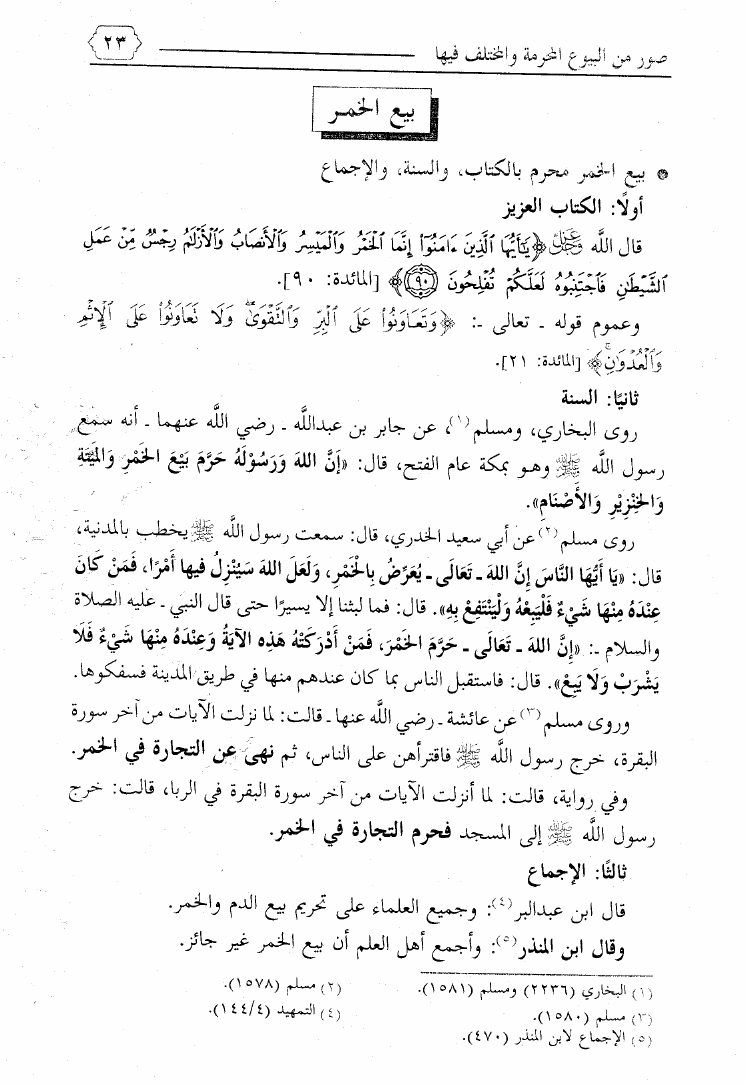 صور من البيوع المحرمة والمختلف فيها ٢٣
بيع الخمر
بيع الخمر محرم بالكتاب، والسنة، والإجماع
أولًا: الكتاب العزيز
قال الله ﷿ ﴿يَٰٓأَيُّهَا ٱلَّذِينَ ءَامَنُوٓا۟ إِنَّمَا ٱلْخَمْرُ وَٱلْمَيْسِرُ وَٱلْأَنصَابُ وَٱلْأَزْلَٰمُ رِجْسٌ مِّنْ عَمَلِ
ٱلشَّيْطَٰنِ فَٱجْتَنِبُوهُ لَعَلَّكُمْ تُفْلِحُونَ ۝٩٠﴾ [المائدة: ٩٠].
وعموم قوله ـ تعالى ـ: ﴿وَتَعَاوَنُوا۟ عَلَى ٱلْبِرِّ وَٱلتَّقْوَىٰ ۖ وَلَا تَعَاوَنُوا۟ عَلَى ٱلْإِثْمِ
وَٱلْعُدْوَٰنِ ۚ﴾ [المائدة: ٢١].
ثانيًا: السنة
روى البخاري، ومسلم(١)، عن جابر بن عبدالله ـ رضي الله عنهما ـ أنه سمع
رسول الله ﷺ وهو بمكة عام الفتح، قال: «إِنَّ اللهَ وَرَسُوْلَهُ حَرَّمَ بَيْعَ الخَمْرِ وَالمَيْتَةِ
وَالخِنْزِيْرِ وَالأَصْنَامِ».
روى مسلم(٢) عن أبي سعيد الخدري، قال: سمعت رسول الله ﷺ يخطب بالمدنية،
قال: «يَا أَيُّهَا النَّاسَ إِنَّ اللهَ ـ تَعَالَى ـ يُعَرِّضُ بِالْخَمْرِ، وَلَعَلَ اللهَ سَيُنْزِلُ فِيها أَمْرًا، فَمَنْ كَانَ
عِنْدَهُ مِنْهَا شَيْءٌ فَلْيَبِعْهُ وَلْيَنْتَفِعْ بِهِ». قال: فما لبثنا إلا يسيرًا حتى قال النبي ـ عليه الصلاة
والسلام ـ: «إِنَّ اللهَ ـ تَعَالَى ـ حَرَّمَ الخَمْرَ، فَمَنْ أَدْرَكَتْهُ هَذِهِ الآيَةُ وَعِنْدَهُ مِنْهَا شَيْءٌ فَلَا
يَشْرَبْ وَلَا يَبِعْ». قال: فاستقبل الناس بما كان عندهم منها في طريق المدينة فسفكوها.
وروى مسلم(٣) عن عائشة ـ رضي الله عنها ـ قالت: لما نزلت الآيات من آخر سورة
البقرة، خرج رسول الله ﷺ فاقترأهن على الناس، ثم نهى عن التجارة في الخمر.
وفي رواية، قالت: لما أنزلت الآيات من آخر سورة البقرة في الربا، قالت: خرج
رسول الله ﷺ إلى المسجد فحرم التجارة في الخمر.
ثالثًا: الإجماع
قال ابن عبدالبر(٤): وجميع العلماء على تحريم بيع الدم والخمر.
وقال ابن المنذر(٥): وأجمع أهل العلم أن بيع الخمر غير جائز.
(١) البخاري (٢٢٣٦) ومسلم (١٥٨١). (٢) مسلم (١٥٧٨).
(٣) مسلم (١٥٨٠). (٤) التمهيد (١٤٤/٤).
(٥) الإجماع لابن المنذر (٤٧٠).